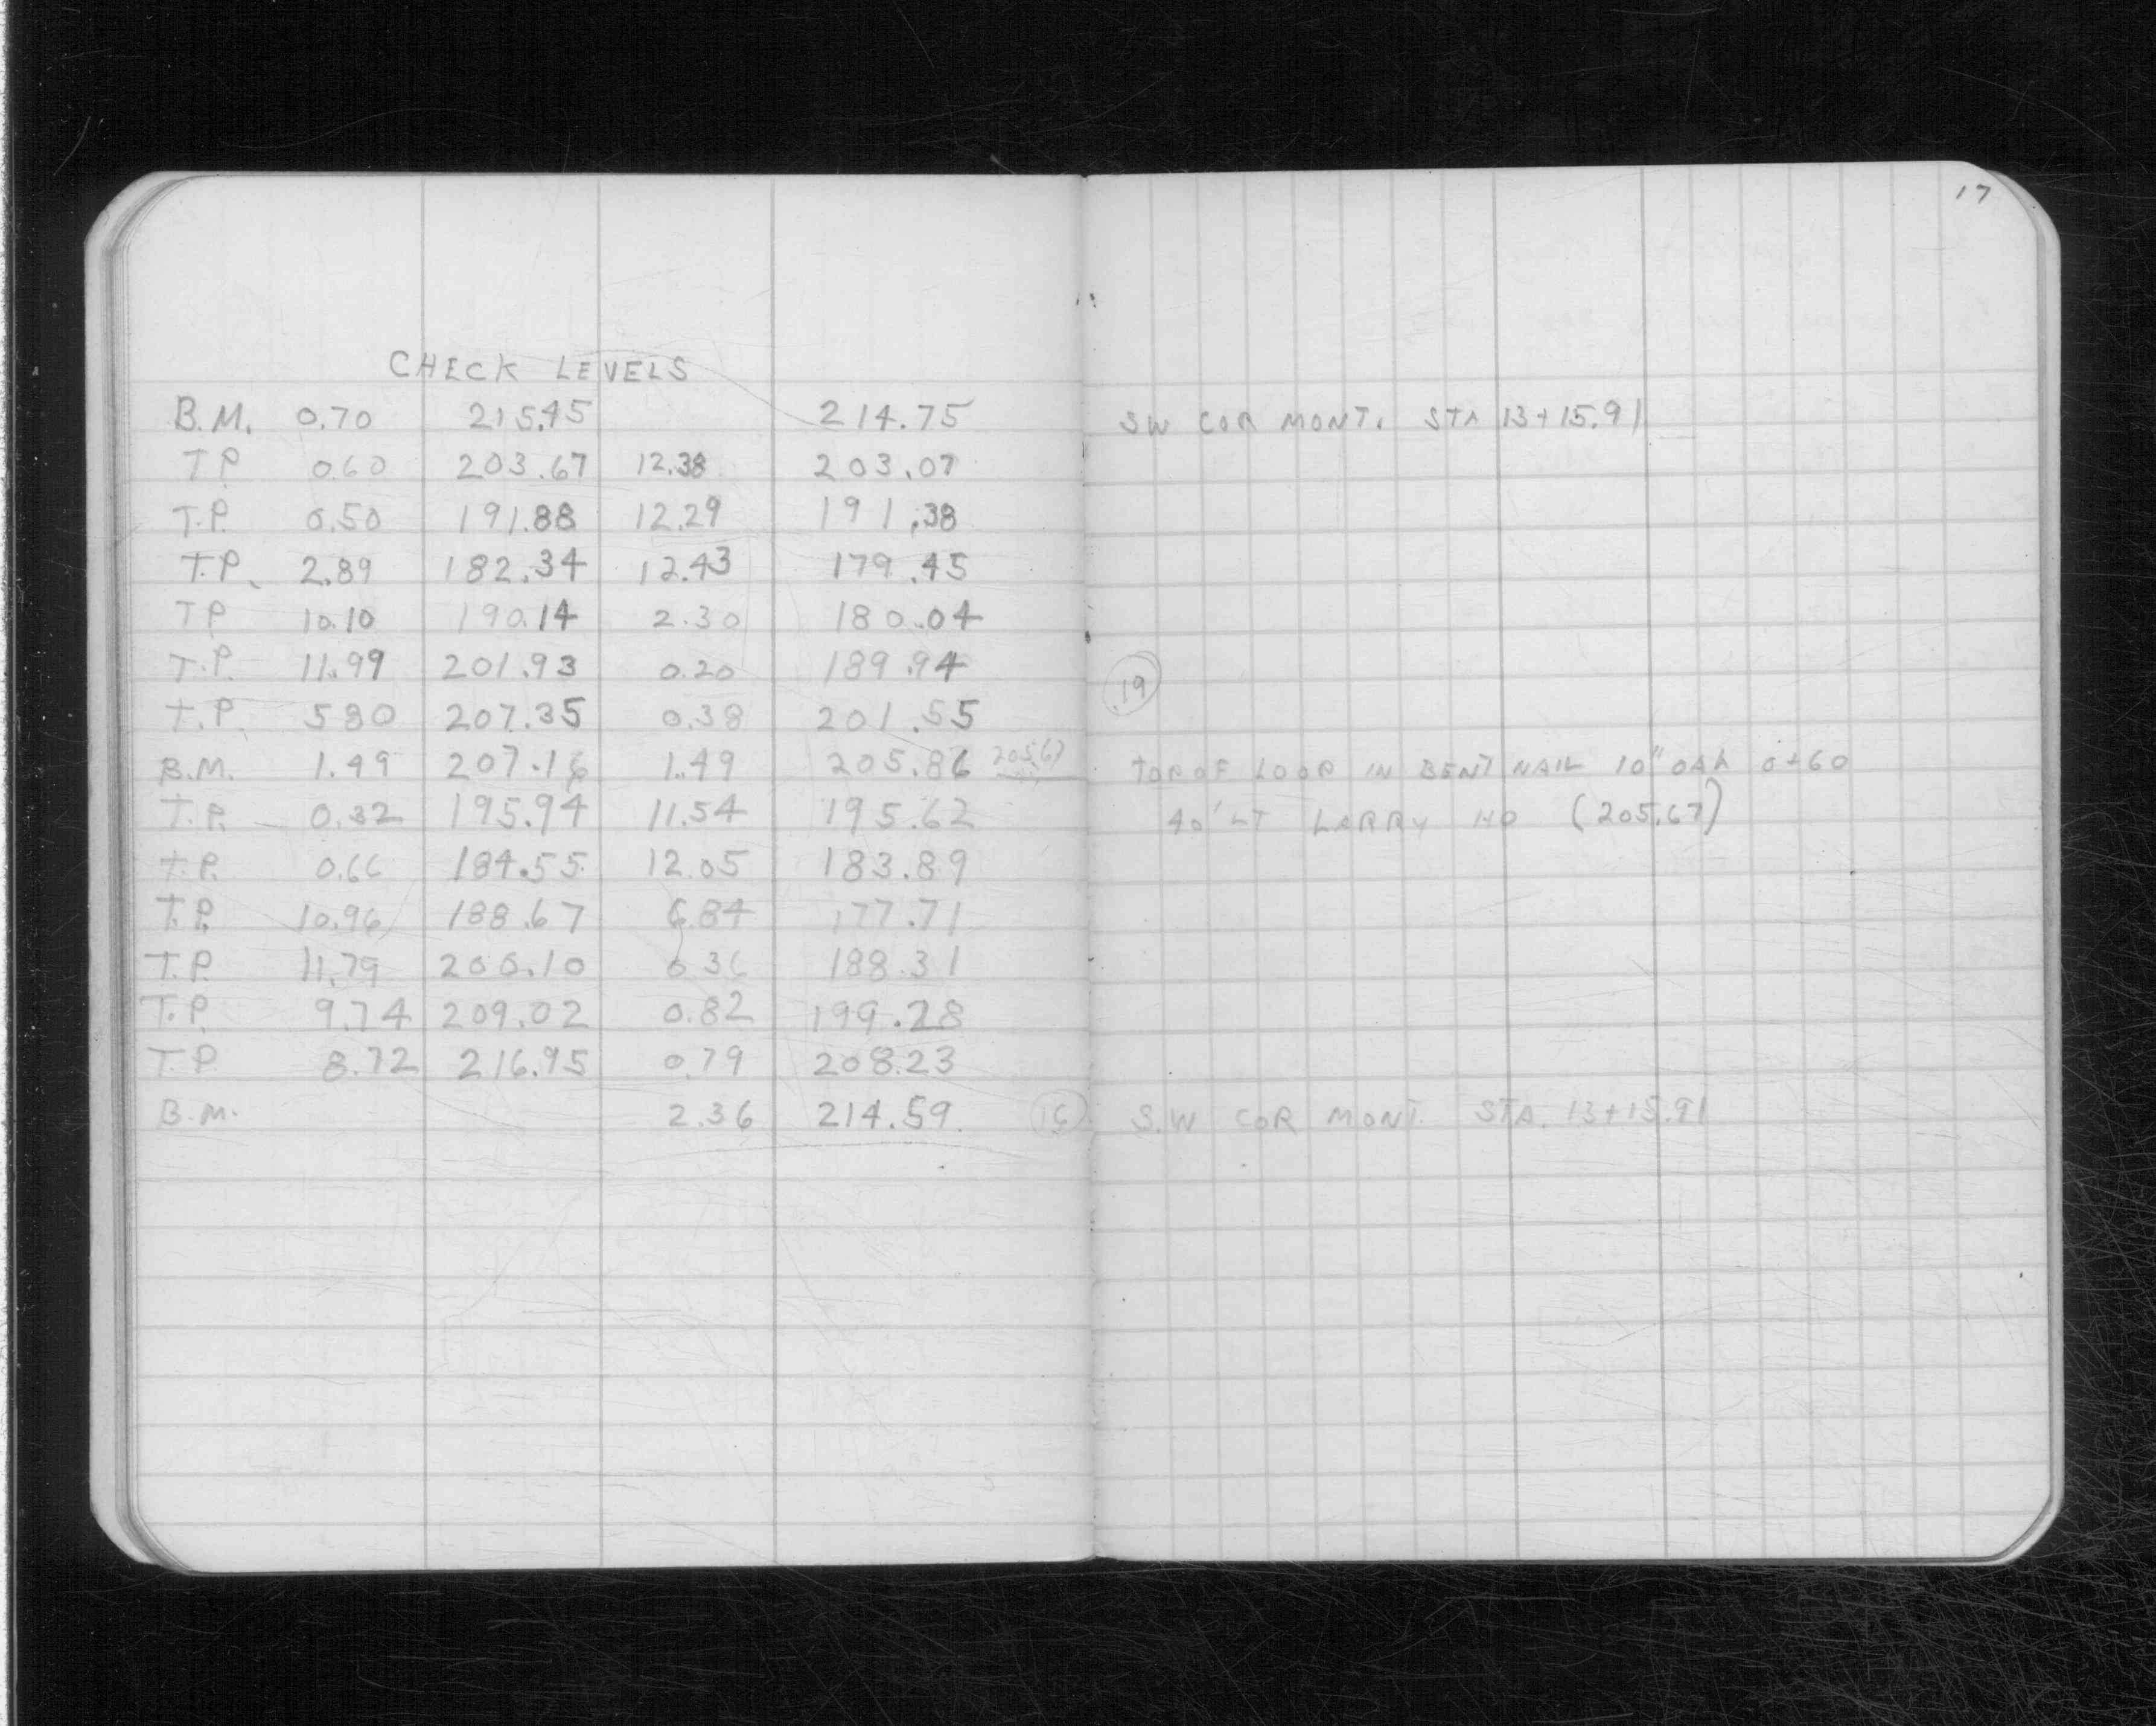 17
CHECK LEVELS
B.M. 0.70 215.45 214.75 SW COR MONT. STA 13+15.91
T.P. 0.60 203.67 12.38 203.07
T.P. 0.50 191.88 12.29 191.38
T.P. 2.89 182.34 12.43 179.45
T.P 10.10 190.14 2.30 180.04
T.P. 11.99 201.93 0.20 189.94 19
T.P. 5.80 207.35 0.38 201.55
B.M. 1.49 207.16 1.49 205.86 205.67 TOP OF LOOP IN BENT NAIL 10" OAK 0+60
T.P. 0.32 195.94 11.54 195.62 40' LT LARRY HO (205.67)
T.P. 0.66 184.55 12.05 183.89
T.P. 10.96 188.67 6.84 177.71
T.P. 11.79 200.10 0.36 188.31
T.P. 9.74 209.02 0.82 199.28
T.P. 8.72 216.95 0.79 208.23
B.M. 2.36 214.59 16 S.W COR MONT. STA. 13+15.91